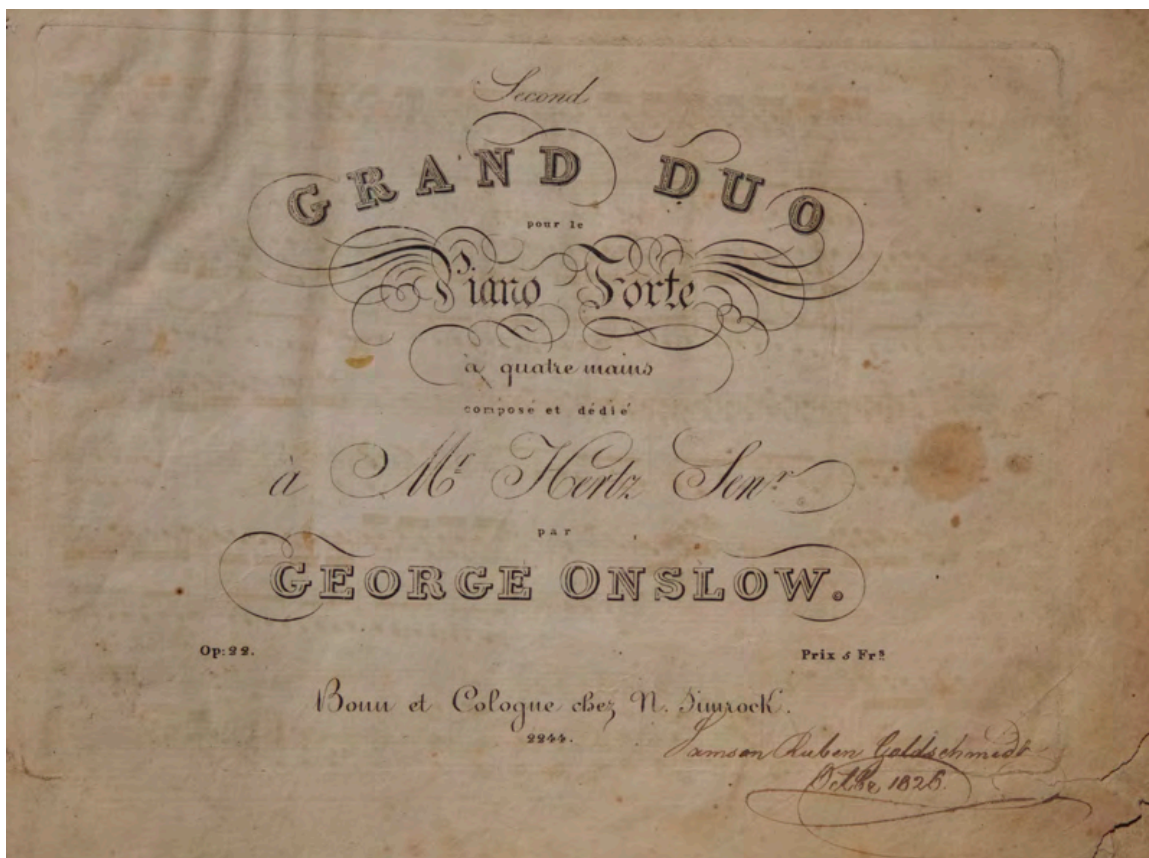 Second
GRAND DUO
pour le
Piano Forte
à quatre mains
composé et dédié
à Mr Hertz Senr
par
GEORGE ONSLOW.
Op: 22. Prix 5 Frs
Bonn et Cologne chez N. Simrock.
2244.
Samson Ruben Goldschmidt
Octbr 1826.